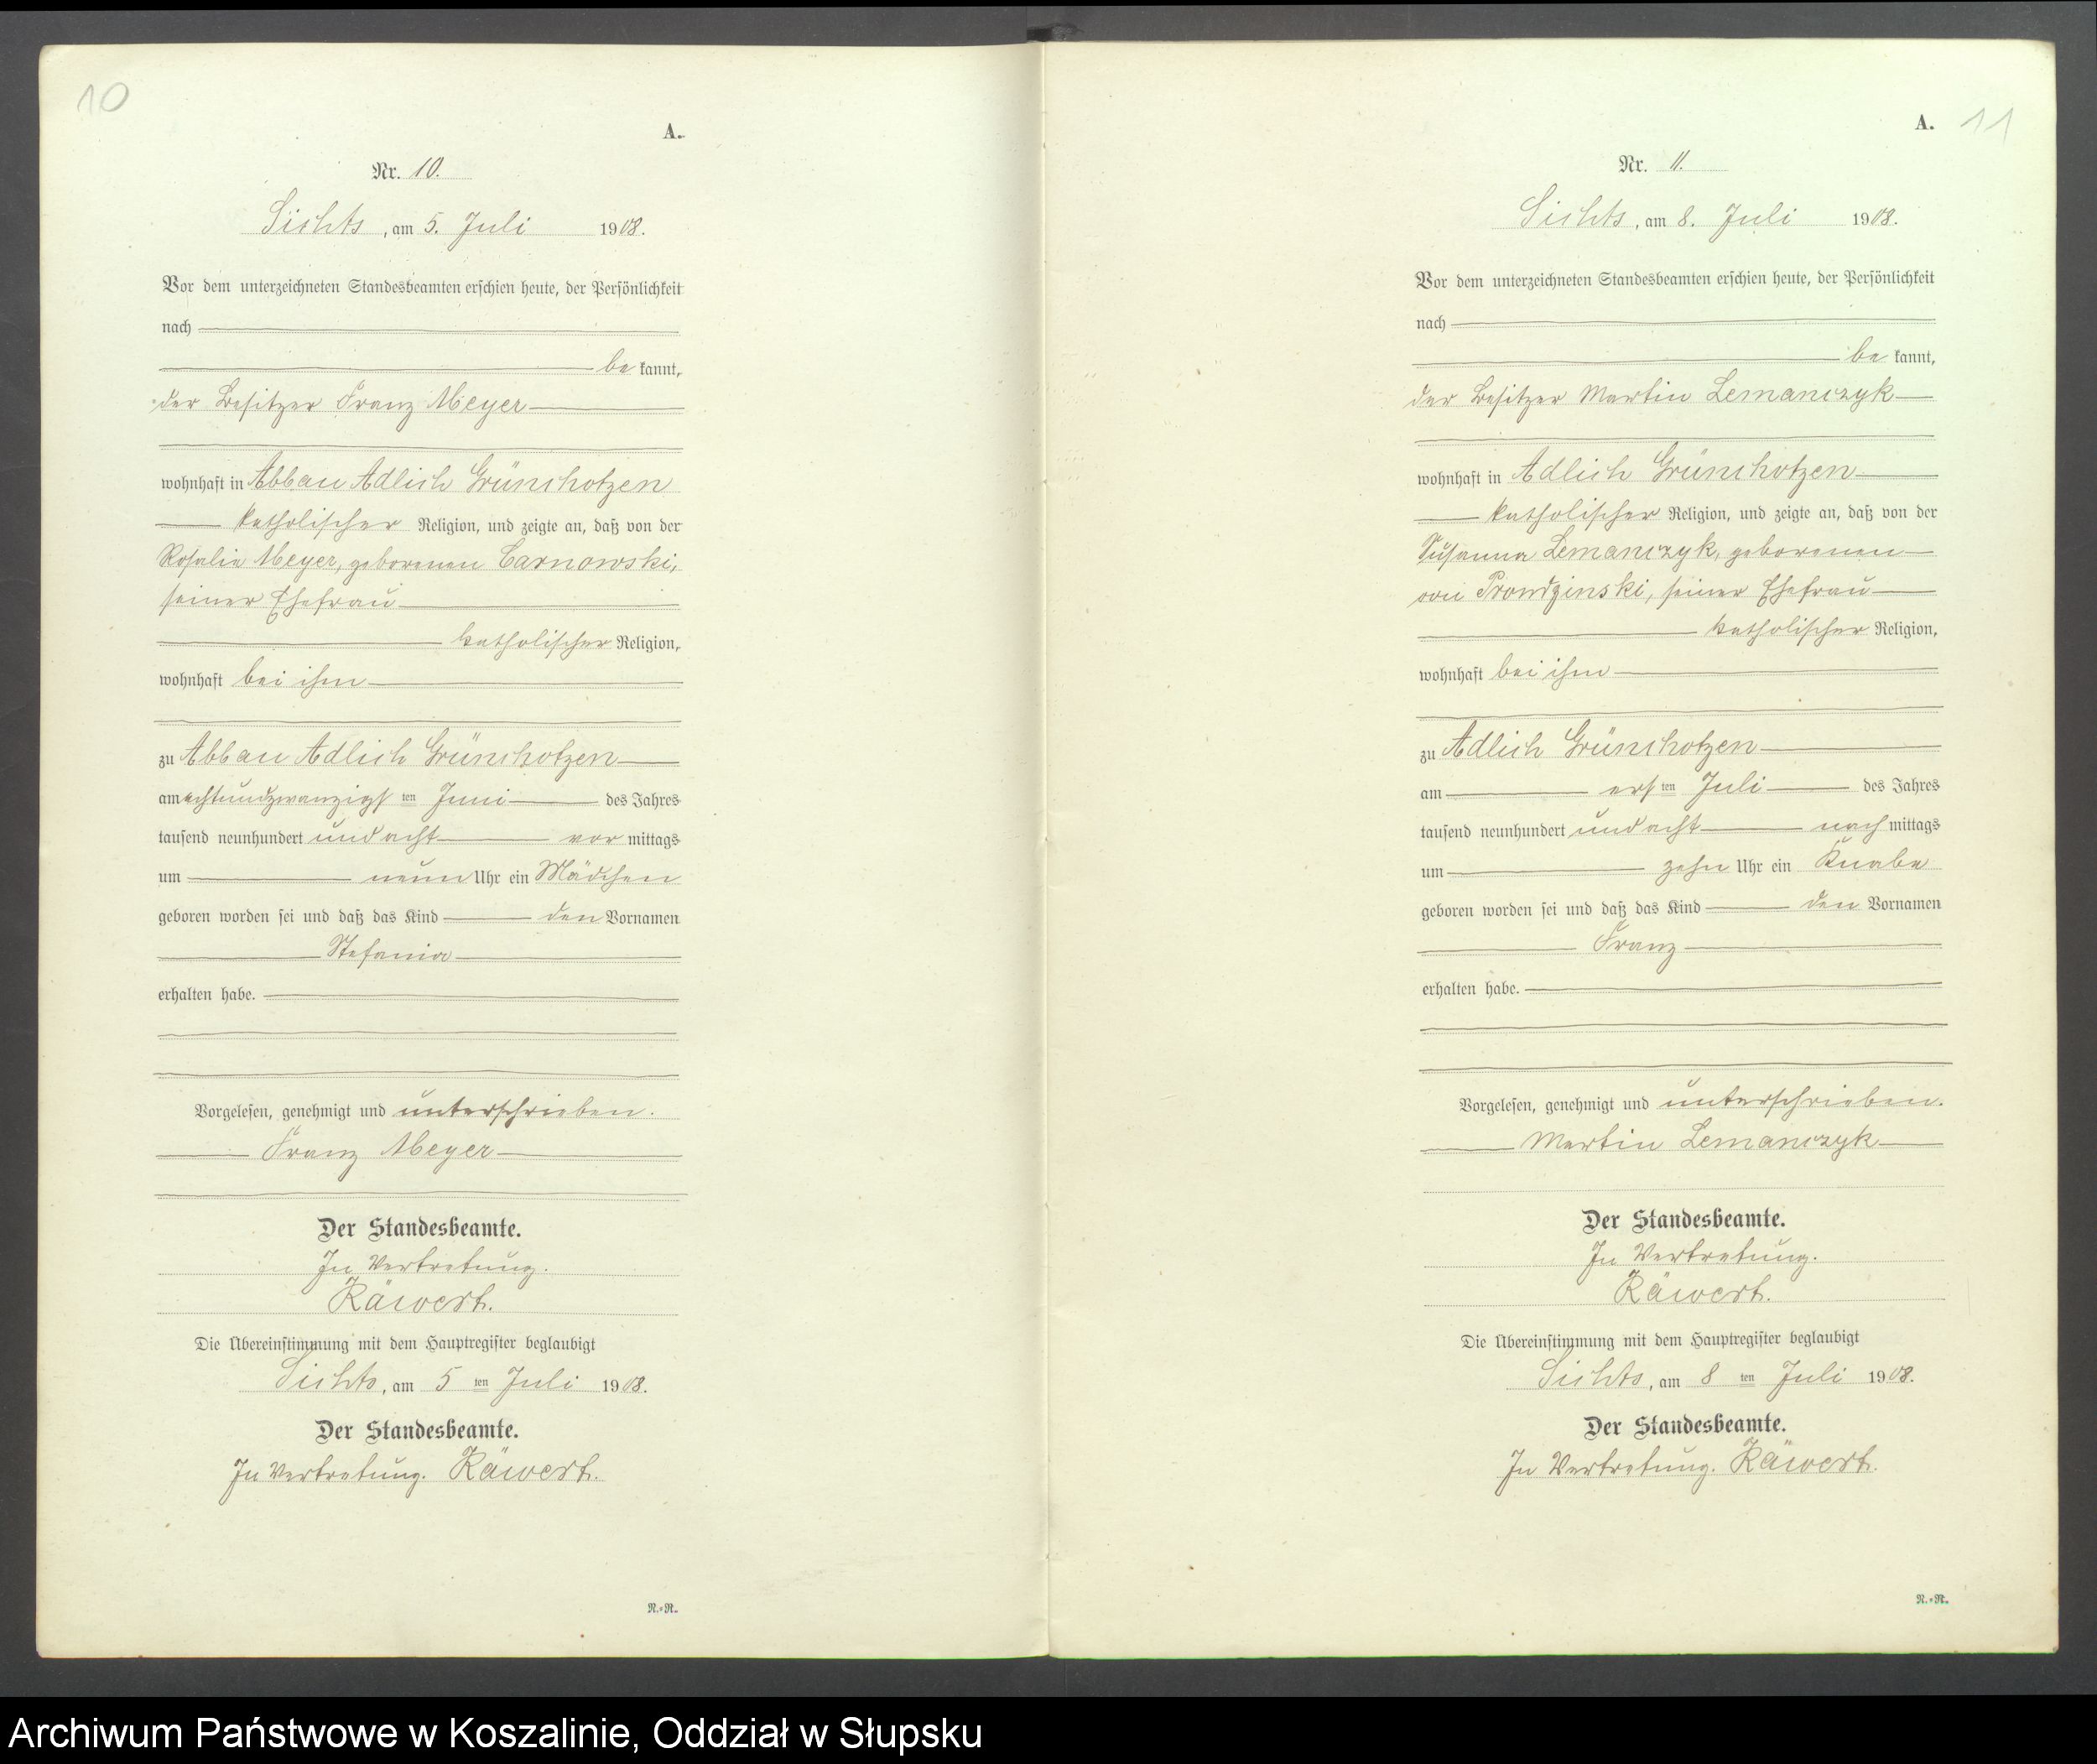 10
A.
Nr. 10.
Sichts, am 5. Juli 1908.
Vor dem unterzeichneten Standesbeamten erschien heute, der Persönlichkeit
nach
be kannt,
der Besitzer Franz Meyer
wohnhaft in Abbau Adlich Grünchotzen
katholischer Religion, und zeigte an, daß von der
Rosalie Meyer, geborenen Czarnowski,
seiner Ehefrau
katholischer Religion,
wohnhaft bei ihm
zu Abbau Adlich Grünchotzen
am achtundzwanzigsten Juni des Jahres
tausend neunhundert und acht vor mittags
um neun Uhr ein Mädchen
geboren worden sei und daß das Kind den Vornamen
Stefania
erhalten habe.
Vorgelesen, genehmigt und unterschrieben.
Franz Meyer
Der Standesbeamte.
In Vertretung.
Räwert.
Die Übereinstimmung mit dem Hauptregister beglaubigt
Sichts, am 5 ten Juli 1908.
Der Standesbeamte.
In Vertretung. Räwert.
R.=R.
11
A.
Nr. 11.
Sichts, am 8. Juli 1908.
Vor dem unterzeichneten Standesbeamten erschien heute, der Persönlichkeit
nach
be kannt,
der Besitzer Martin Lemanczyk
wohnhaft in Adlich Grünchotzen
katholischer Religion, und zeigte an, daß von der
Susanna Lemanczyk, geborenen
von Prondzinski, seiner Ehefrau
katholischer Religion,
wohnhaft bei ihm
zu Adlich Grünchotzen
am ersten Juli des Jahres
tausend neunhundert und acht nach mittags
um zehn Uhr ein Knabe
geboren worden sei und daß das Kind den Vornamen
Franz
erhalten habe.
Vorgelesen, genehmigt und unterschrieben.
Martin Lemanczyk
Der Standesbeamte.
In Vertretung.
Räwert.
Die Übereinstimmung mit dem Hauptregister beglaubigt
Sichts, am 8 ten Juli 1908.
Der Standesbeamte.
In Vertretung. Räwert.
R.=R.
Archiwum Państwowe w Koszalinie, Oddział w Słupsku